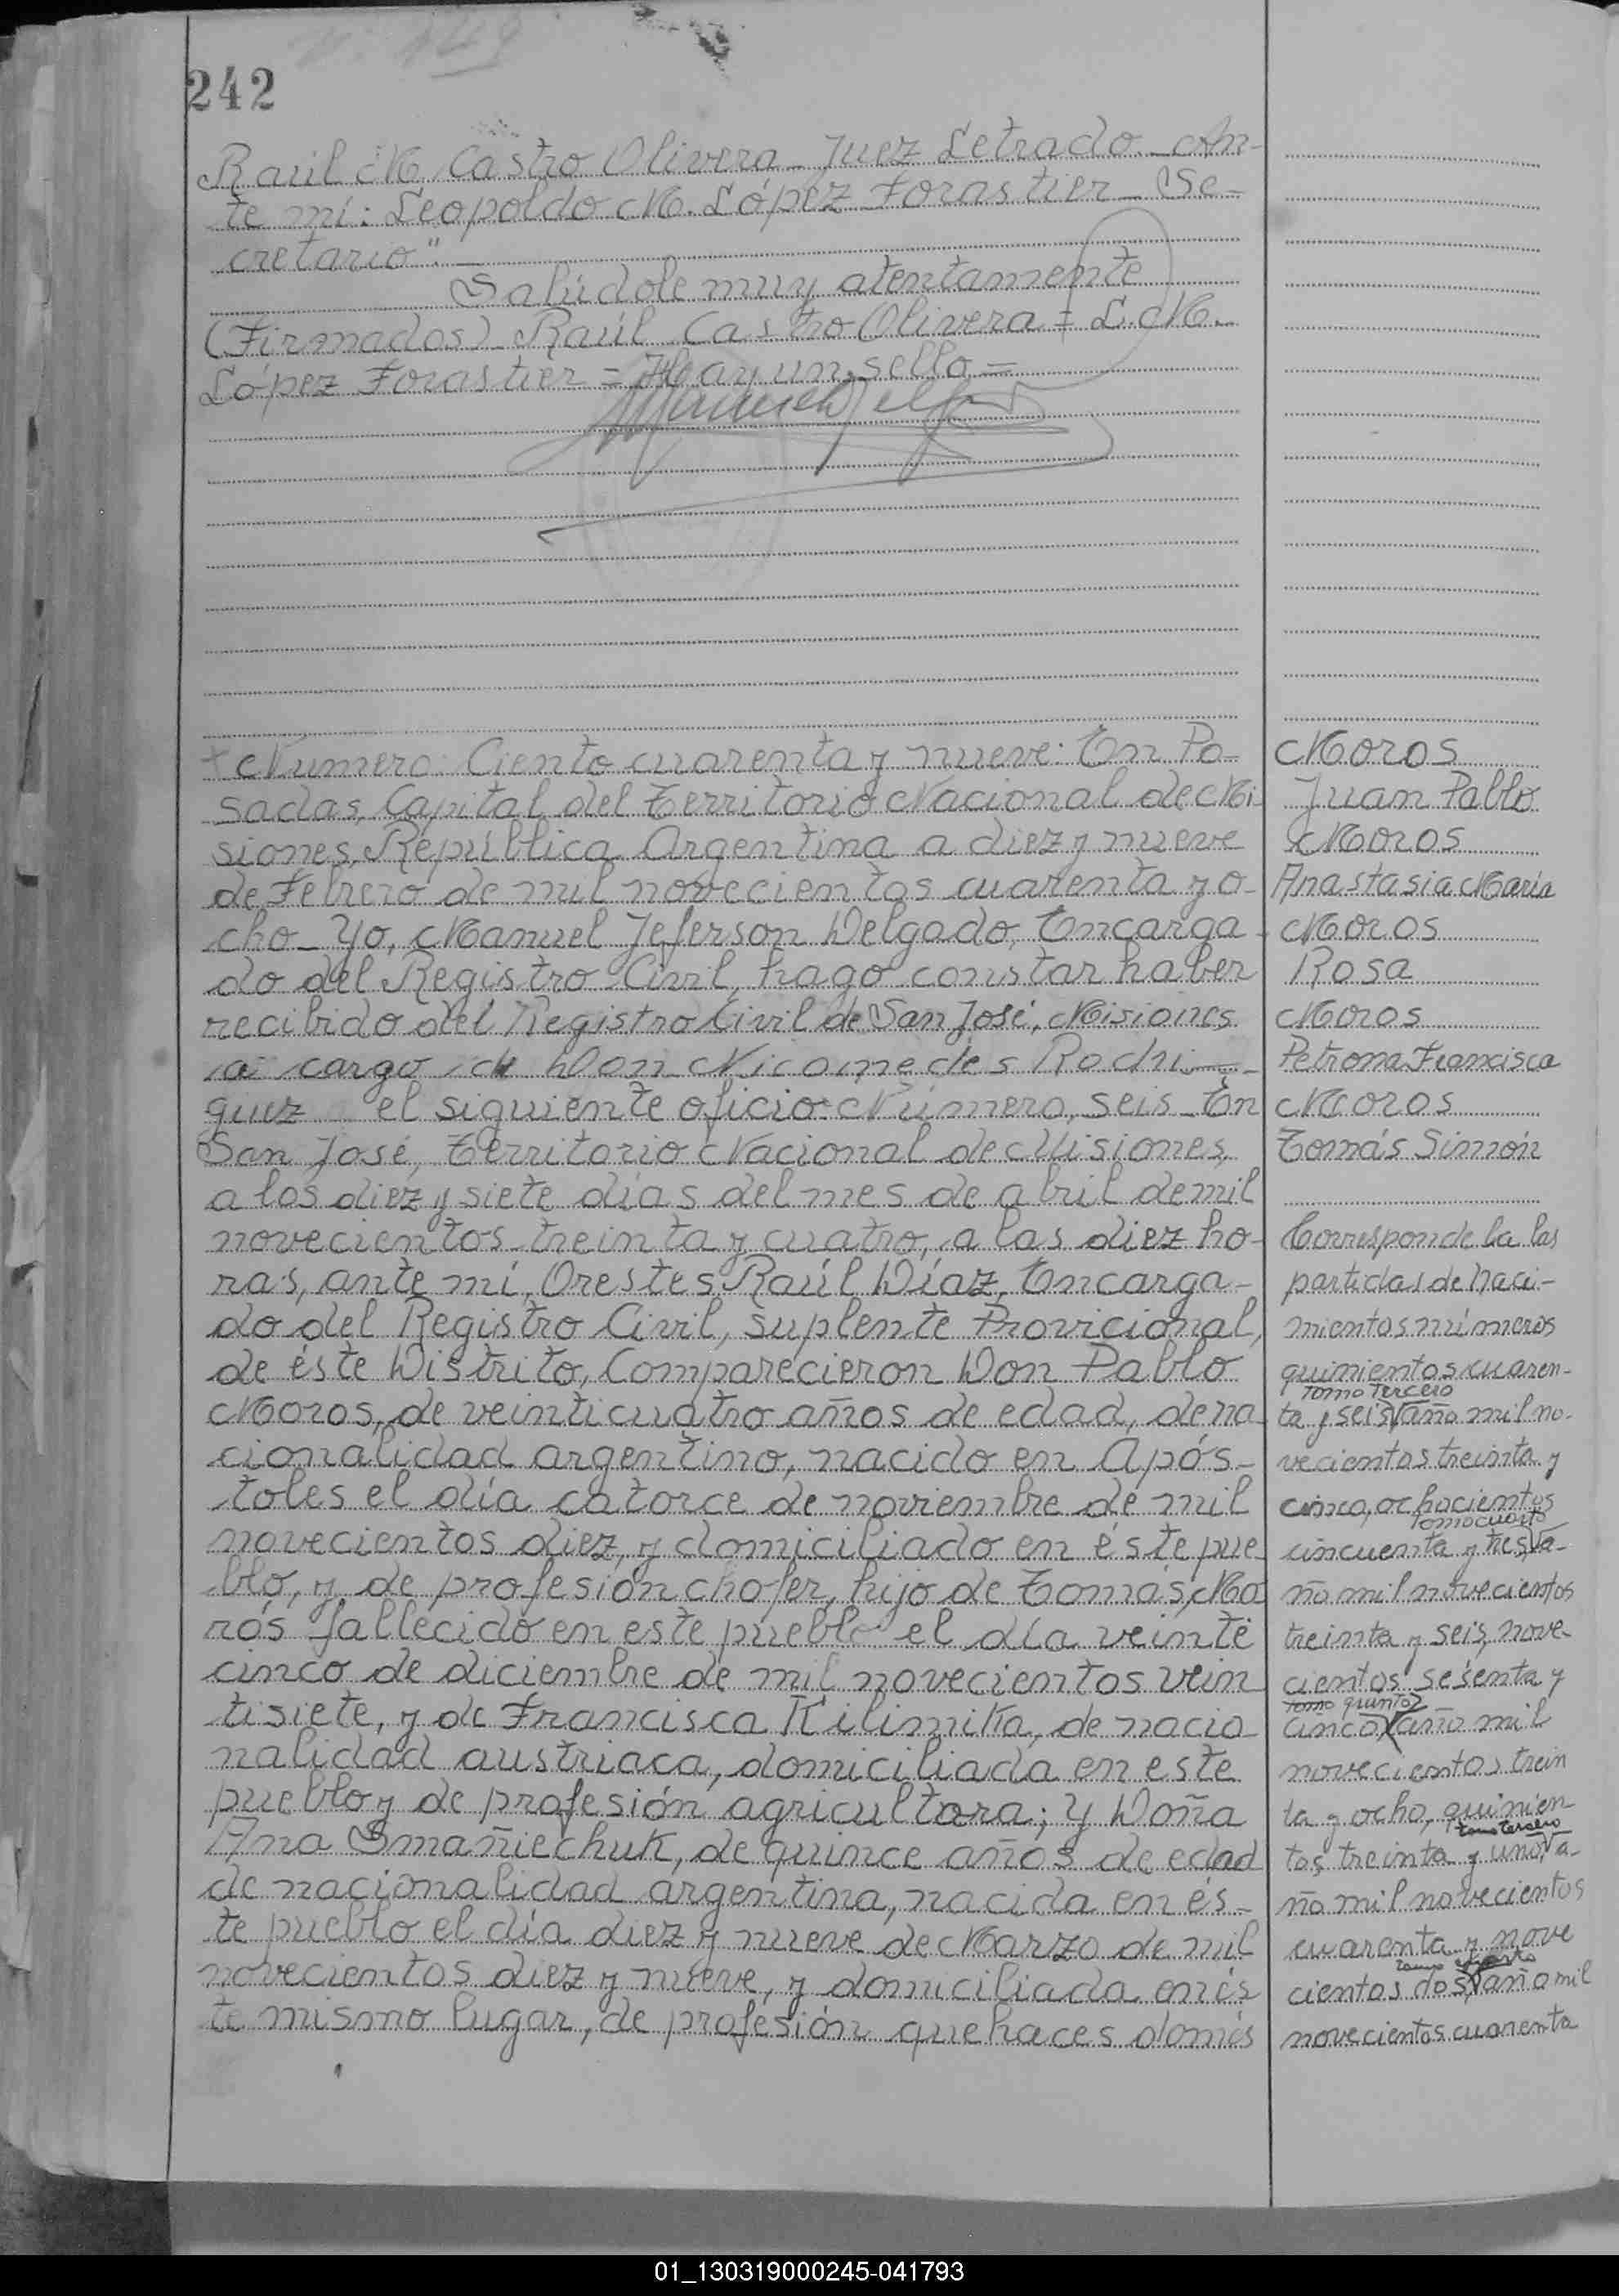 242
149
Raúl M. Castro Olivera_Juez Letrado._An-
te mí: Leopoldo M. López Forastier_Se-
cretario"._
Salúdole muy atentamente
(Firmados)_Raúl Castro Olivera = L. M.
López Forastier = Hay un sello =
+ Numero: Ciento cuarenta y nueve: En Po-
sadas, Capital del Territorio Nacional de Mi
siones, República Argentina a diez y nueve
de Febrero de mil novecientos cuarenta y o-
cho_Yo, Manuel Jeferson Delgado, Encarga-
do del Registro Civil, hago constar haber
recibido del Registro Civil de San José, Misiones
a cargo de Don Nicomedes Rodri-
guez el siguiente oficio: Número, seis_En
San José, Territorio Nacional de Misiones,
a los diez y siete días del mes de abril de mil
novecientos treinta y cuatro, a las diez ho-
ras, ante mí, Orestes Raúl Díaz, Encarga-
do del Registro Civil, suplente Provicional,
de éste Distrito, Comparecieron Don Pablo
Moros, de veinticuatro años de edad, de na
cionalidad argentino, nacido en Após-
toles el día catorce de noviembre de mil
novecientos diez, y domiciliado en éste pue
blo, y de profesión chofer, hijo de Tomás Mo
rós fallecido en este pueblo el día veinte
cinco de diciembre de mil novecientos vein
tisiete, y de Francisca Kilimika, de nacio
nalidad austriaca, domiciliada en este
pueblo y de profesión agricultora; y Doña
Ana Smañiechuk, de quince años de edad
de nacionalidad argentina, nacida en és-
te pueblo el día diez y nueve de Marzo de mil
novecientos diez y nueve, y domiciliada en és
te mismo lugar, de profesión quehaces domés
Moros
Juan Pablo
Moros
Anastasia Maria
Moros
Rosa
Moros
Petrona Francisca
Moros
Tomás Simón
Corresponde la las
partidas de naci-
mientos números
quinientos cuaren-
Tomo Tercero
ta y seis año mil no-
vecientos treinta y
cinco, ochocientos
Tomo cuarto
cincuenta y tres, a-
ño mil novecientos
treinta y seis, nove-
cientos sesenta y
Tomo quinto
cinco año mil
novecientos trein
ta y ocho, quinien
tomo tercero
tos treinta y uno, a-
ño mil novecientos
cuarenta y nove
tomo
cientos dos, año mil
novecientos cuarenta
01_130319000245-041793